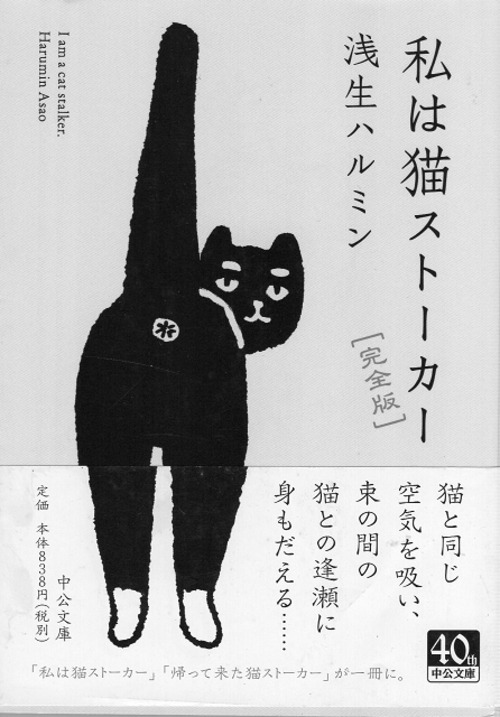 私は猫ストーカー
[完全版]
浅生ハルミン
I am a cat stalker.
Harumin Asao
猫と同じ
空気を吸い、
束の間の
猫との逢瀬に
身もだえる……
中公文庫
定価 本体838円(税別)
「私は猫ストーカー」「帰って来た猫ストーカー」が一冊に。
40th
中公文庫